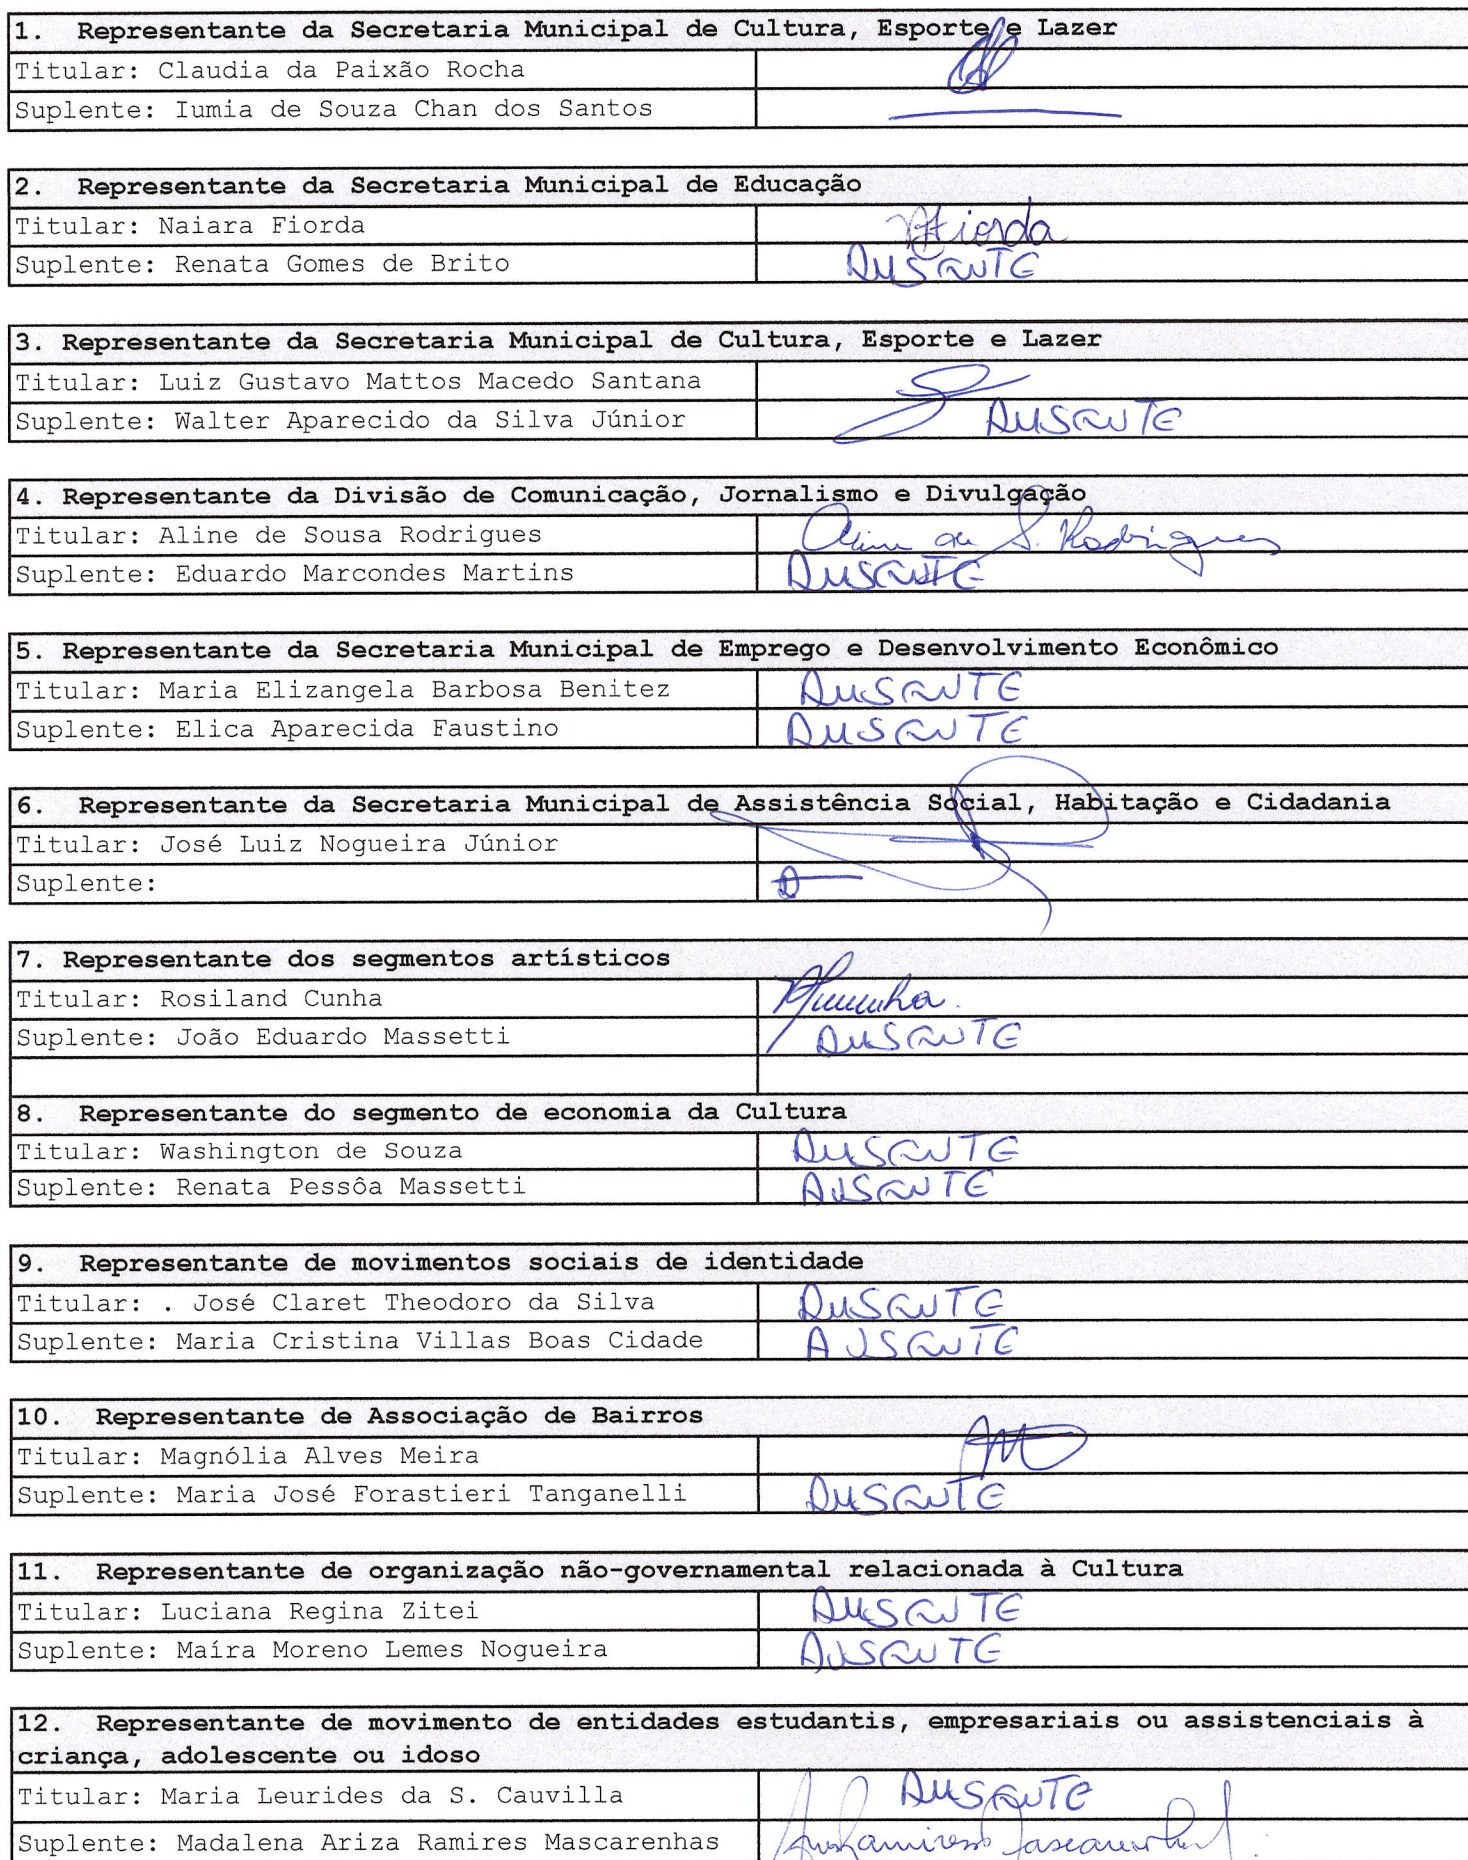 1. Representante da Secretaria Municipal de Cultura, Esporte e Lazer
Titular: Claudia da Paixão Rocha
Suplente: Iumia de Souza Chan dos Santos
2. Representante da Secretaria Municipal de Educação
Titular: Naiara Fiorda NFiorda
Suplente: Renata Gomes de Brito AUSENTE
3. Representante da Secretaria Municipal de Cultura, Esporte e Lazer
Titular: Luiz Gustavo Mattos Macedo Santana
Suplente: Walter Aparecido da Silva Júnior AUSENTE
4. Representante da Divisão de Comunicação, Jornalismo e Divulgação
Titular: Aline de Sousa Rodrigues Aline de S. Rodrigues
Suplente: Eduardo Marcondes Martins AUSENTE
5. Representante da Secretaria Municipal de Emprego e Desenvolvimento Econômico
Titular: Maria Elizangela Barbosa Benitez AUSENTE
Suplente: Elica Aparecida Faustino AUSENTE
6. Representante da Secretaria Municipal de Assistência Social, Habitação e Cidadania
Titular: José Luiz Nogueira Júnior
Suplente:
7. Representante dos segmentos artísticos
Titular: Rosiland Cunha
Suplente: João Eduardo Massetti AUSENTE
8. Representante do segmento de economia da Cultura
Titular: Washington de Souza AUSENTE
Suplente: Renata Pessôa Massetti AUSENTE
9. Representante de movimentos sociais de identidade
Titular: . José Claret Theodoro da Silva AUSENTE
Suplente: Maria Cristina Villas Boas Cidade AUSENTE
10. Representante de Associação de Bairros
Titular: Magnólia Alves Meira
Suplente: Maria José Forastieri Tanganelli AUSENTE
11. Representante de organização não-governamental relacionada à Cultura
Titular: Luciana Regina Zitei AUSENTE
Suplente: Maíra Moreno Lemes Nogueira AUSENTE
12. Representante de movimento de entidades estudantis, empresariais ou assistenciais à
criança, adolescente ou idoso
Titular: Maria Leurides da S. Cauvilla AUSENTE
Suplente: Madalena Ariza Ramires Mascarenhas